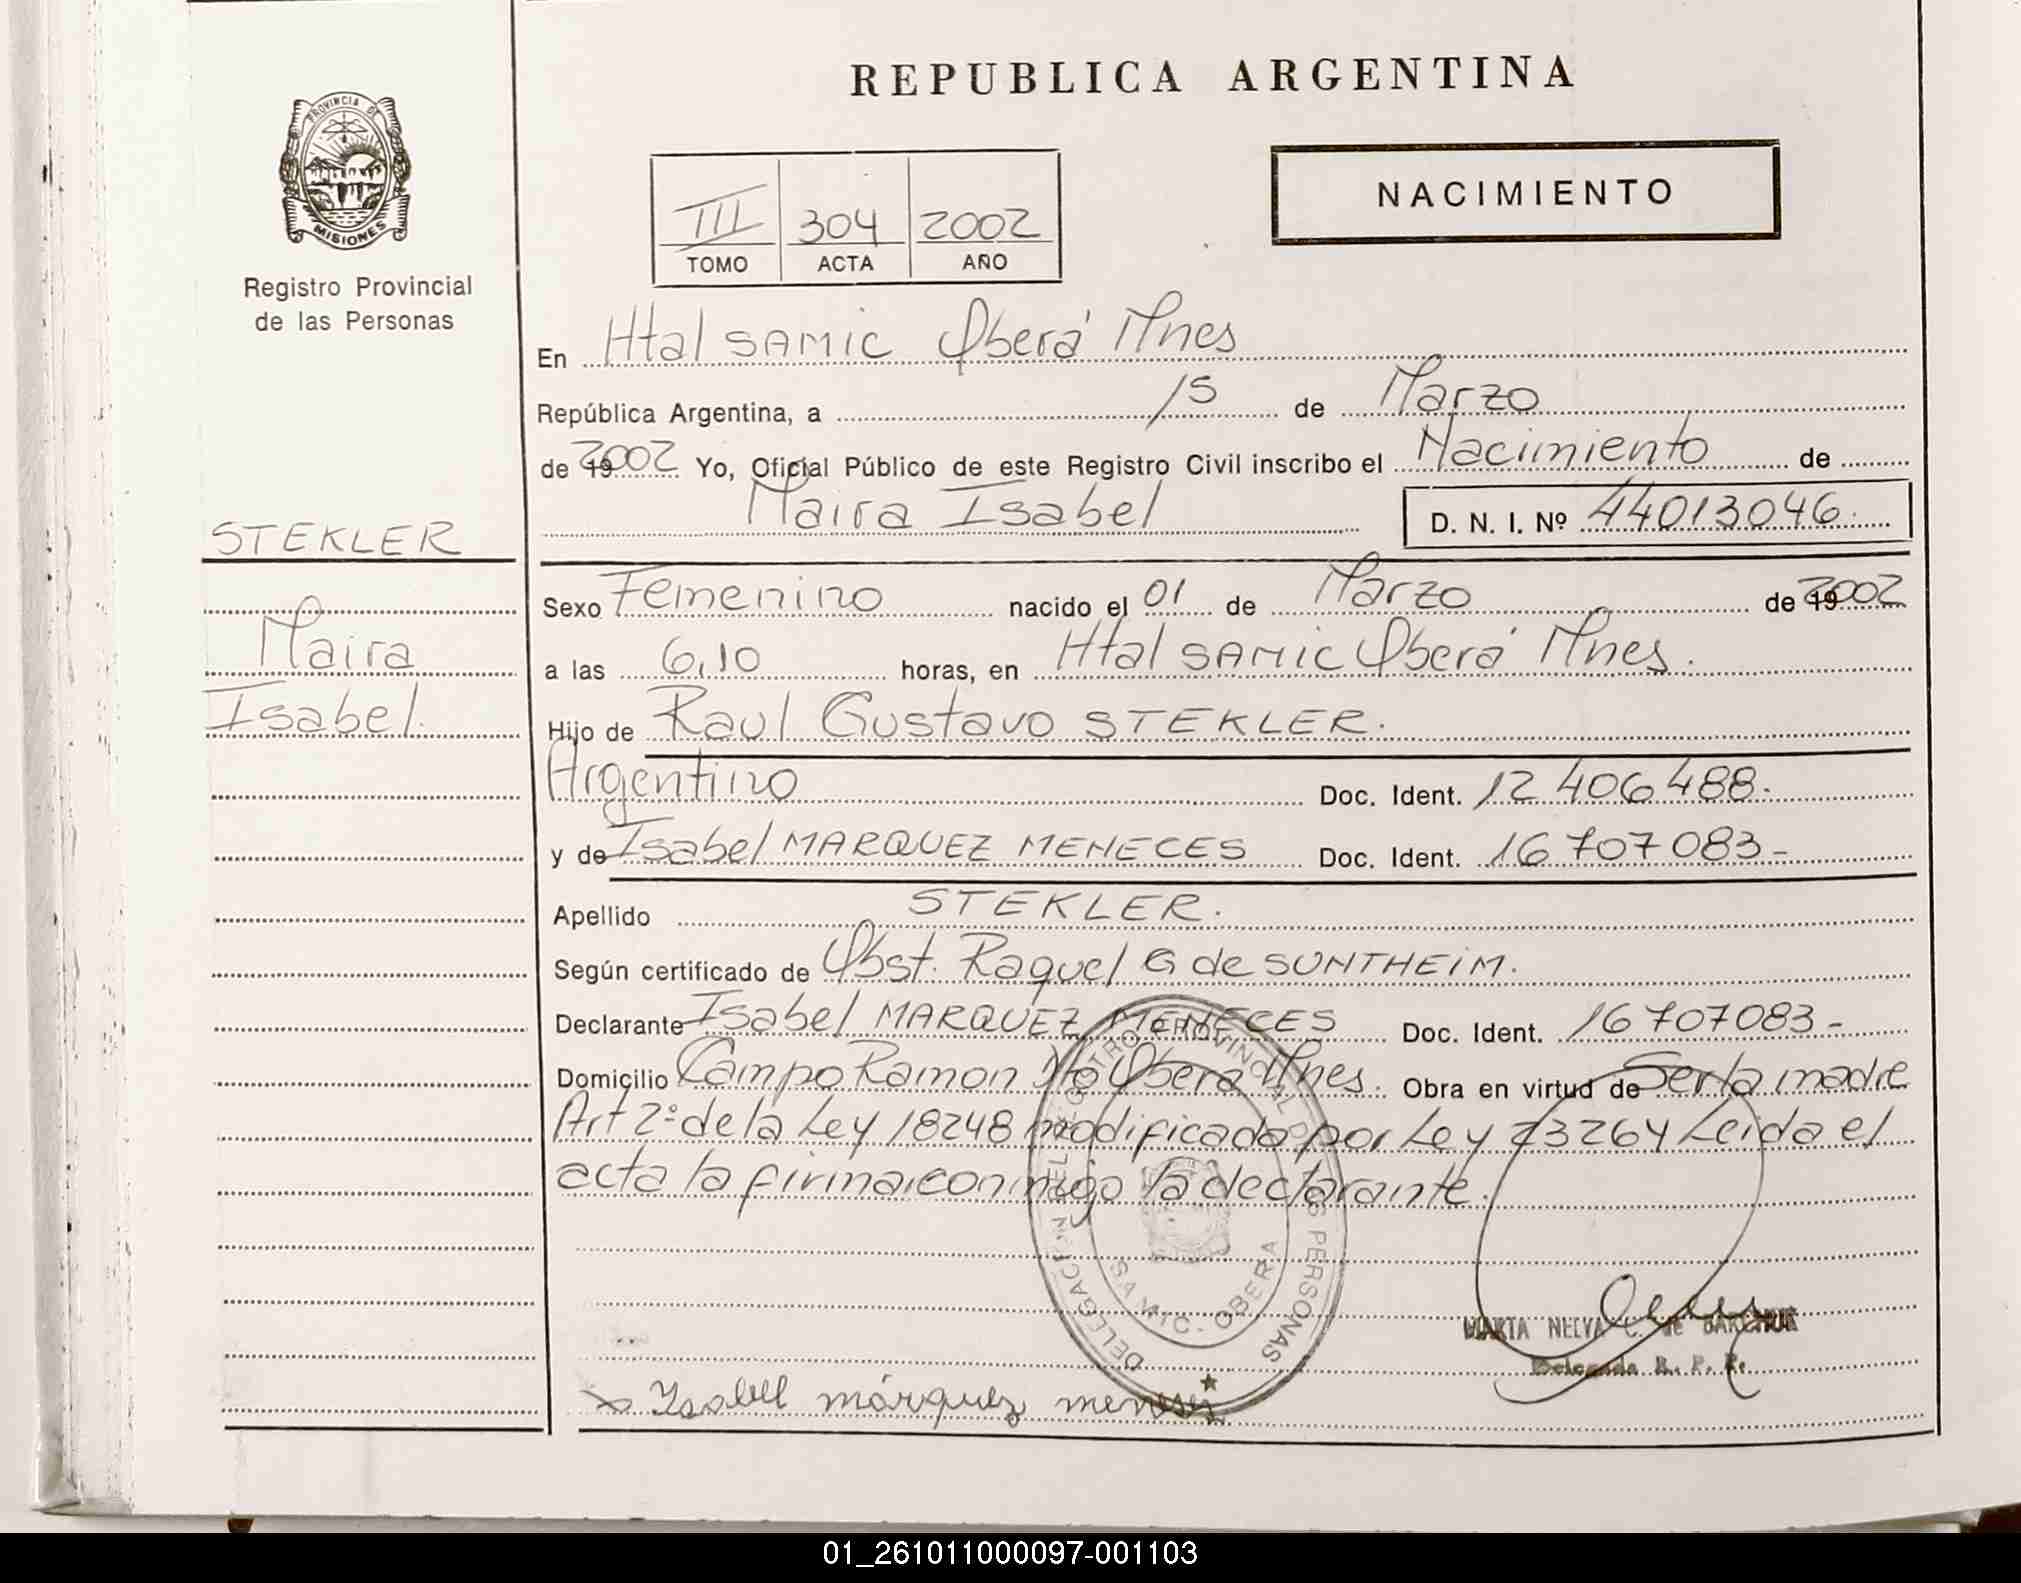 REPUBLICA ARGENTINA
PROVINCIA DE
MISIONES
Registro Provincial
de las Personas
III 304 2002
TOMO ACTA AÑO
NACIMIENTO
En Htal SAMIC Oberá Mnes
República Argentina, a 15 de Marzo
de 2002 Yo, Oficial Público de este Registro Civil inscribo el Nacimiento de
Maira Isabel D. N. I. Nº 44013046.
STEKLER
Maira
Isabel.
Sexo Femenino nacido el 01 de Marzo de 2002
a las 6,10 horas, en Htal SAMIC Oberá Mnes.
Hijo de Raul Gustavo STEKLER.
Argentino Doc. Ident. 12 406 488.
y de Isabel MARQUEZ MENECES Doc. Ident. 16 707 083-
Apellido STEKLER.
Según certificado de Obst. Raquel G de SUNTHEIM.
Declarante Isabel MARQUEZ MENECES Doc. Ident. 16 707 083-
Domicilio Campo Ramon Oberá Mnes. Obra en virtud de Ser la madre
Art 2º de la Ley 18248 modificada por Ley 23264 Leida el
acta la firma conmigo la declarante.
DELEGACION DEL REGISTRO PROVINCIAL DE LAS PERSONAS
SAMIC - OBERA
MARTA NELVA C. de
Delegada R. P. P.
Isabel márquez meneses
01_261011000097-001103